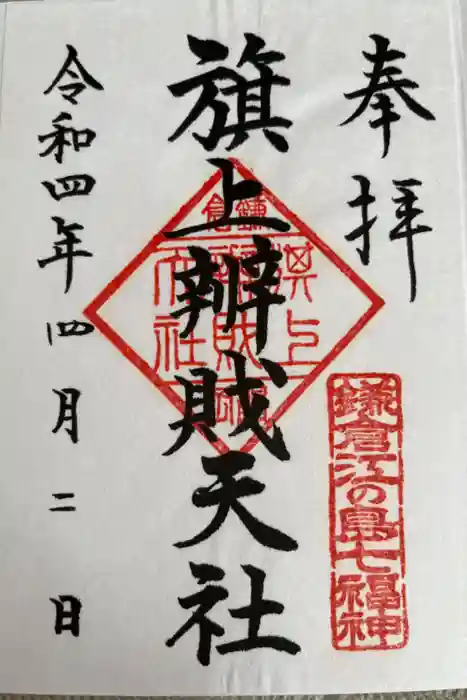 奉拝
鎌倉江の島七福神
旗上辨財天社
鎌倉
旗上
辨財
天社
令和四年四月二日